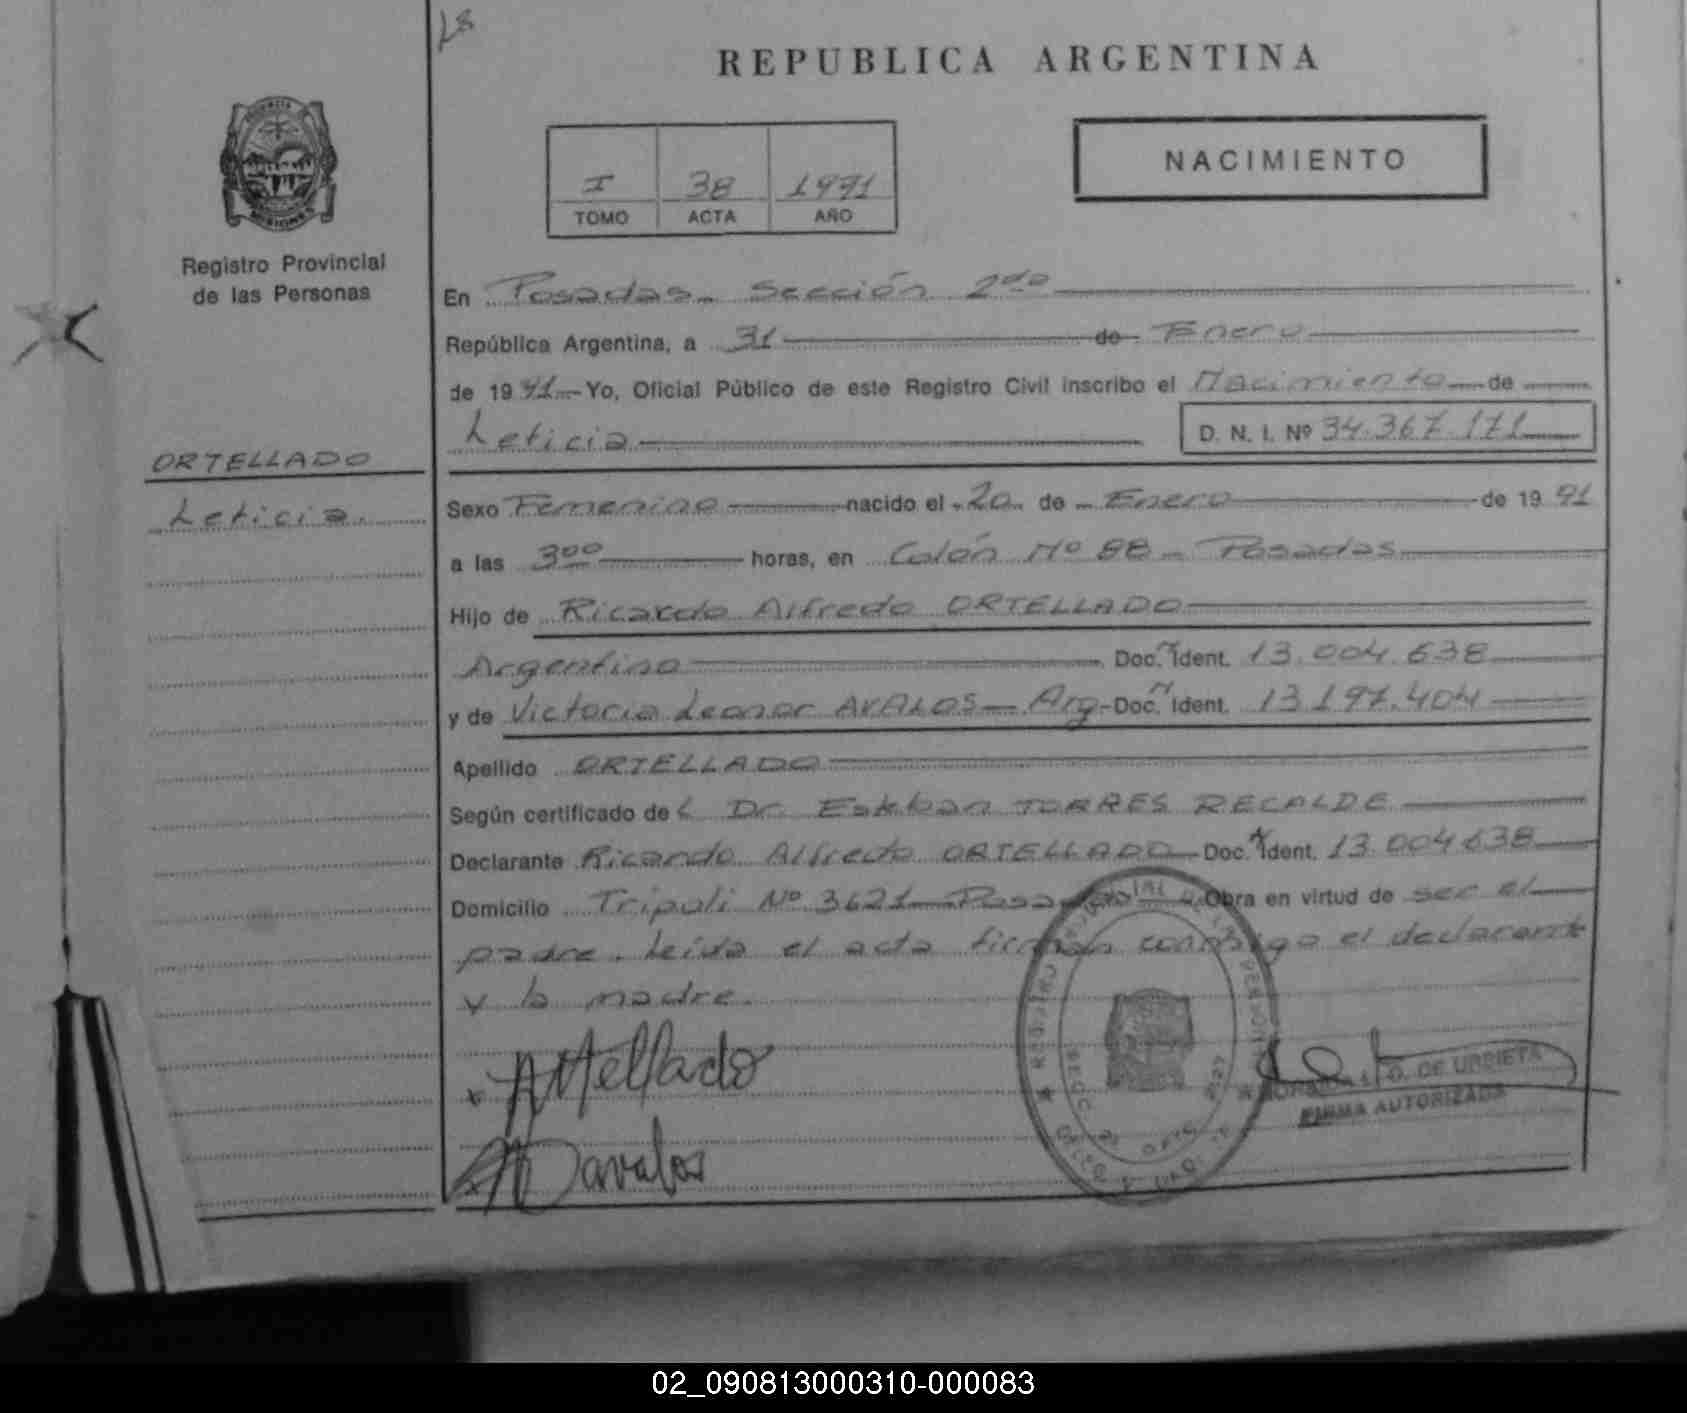 REPUBLICA ARGENTINA
PROVINCIA
MISIONES
Registro Provincial
de las Personas
I 38 1991
TOMO ACTA AÑO
NACIMIENTO
En Posadas - Sección 2da
República Argentina, a 31 de Enero
de 1991 Yo, Oficial Público de este Registro Civil inscribo el Nacimiento de
Leticia D. N. I. Nº 34.367.171
ORTELLADO
Leticia.
Sexo Femenino nacido el 20 de Enero de 1991
a las 3:00 horas, en Colón Nº 88 - Posadas
Hijo de Ricardo Alfredo ORTELLADO
Argentino Doc. Ident. 13.004.638
y de Victoria Leonor AVALOS - Arg - Doc. Ident. 13.197.404
Apellido ORTELLADO
Según certificado del Dr. Esteban TORRES RECALDE
Declarante Ricardo Alfredo ORTELLADO Doc. Ident. 13.004.638
Domicilio Tripoli Nº 3621 - Posadas Obra en virtud de ser el
padre. Leída el acta firman conmigo el declarante
y la madre.
Ortellado
Davalos
DE URRIETA
FIRMA AUTORIZADA
02_090813000310-000083